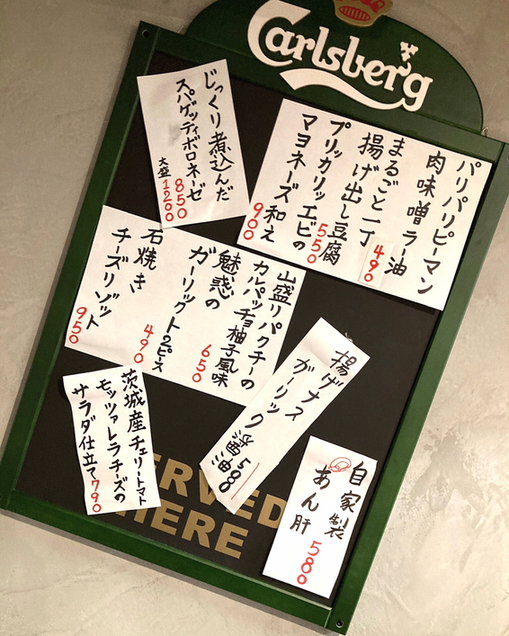 Carlsberg
パリパリピーマン
肉味噌ラー油
490
まるごと一丁
揚げ出し豆腐
550
プリッカリッエビの
マヨネーズ和え
900
じっくり煮込んだ
スパゲッティボロネーゼ
850
大盛1200
山盛りパクチーの
カルパッチョ柚子風味
650
魅惑の
ガーリックトースト2ピース
490
石焼き
チーズリゾット
950
揚げナス
ガーリック醤油
500
茨城産チェリートマト
モッツァレラチーズの
サラダ仕立て790
自家製
あん肝
580
ERVED
HERE